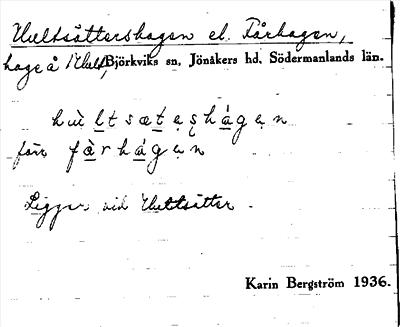 Hultsättershagen el. Fårhagen,
hage å Hult, Björkviks sn, Jönåkers hd, Södermanlands län.
hul̀tsætes̨hágen
förr fàrhágen
Ligger vid Hultsätter.
Karin Bergström 1936.